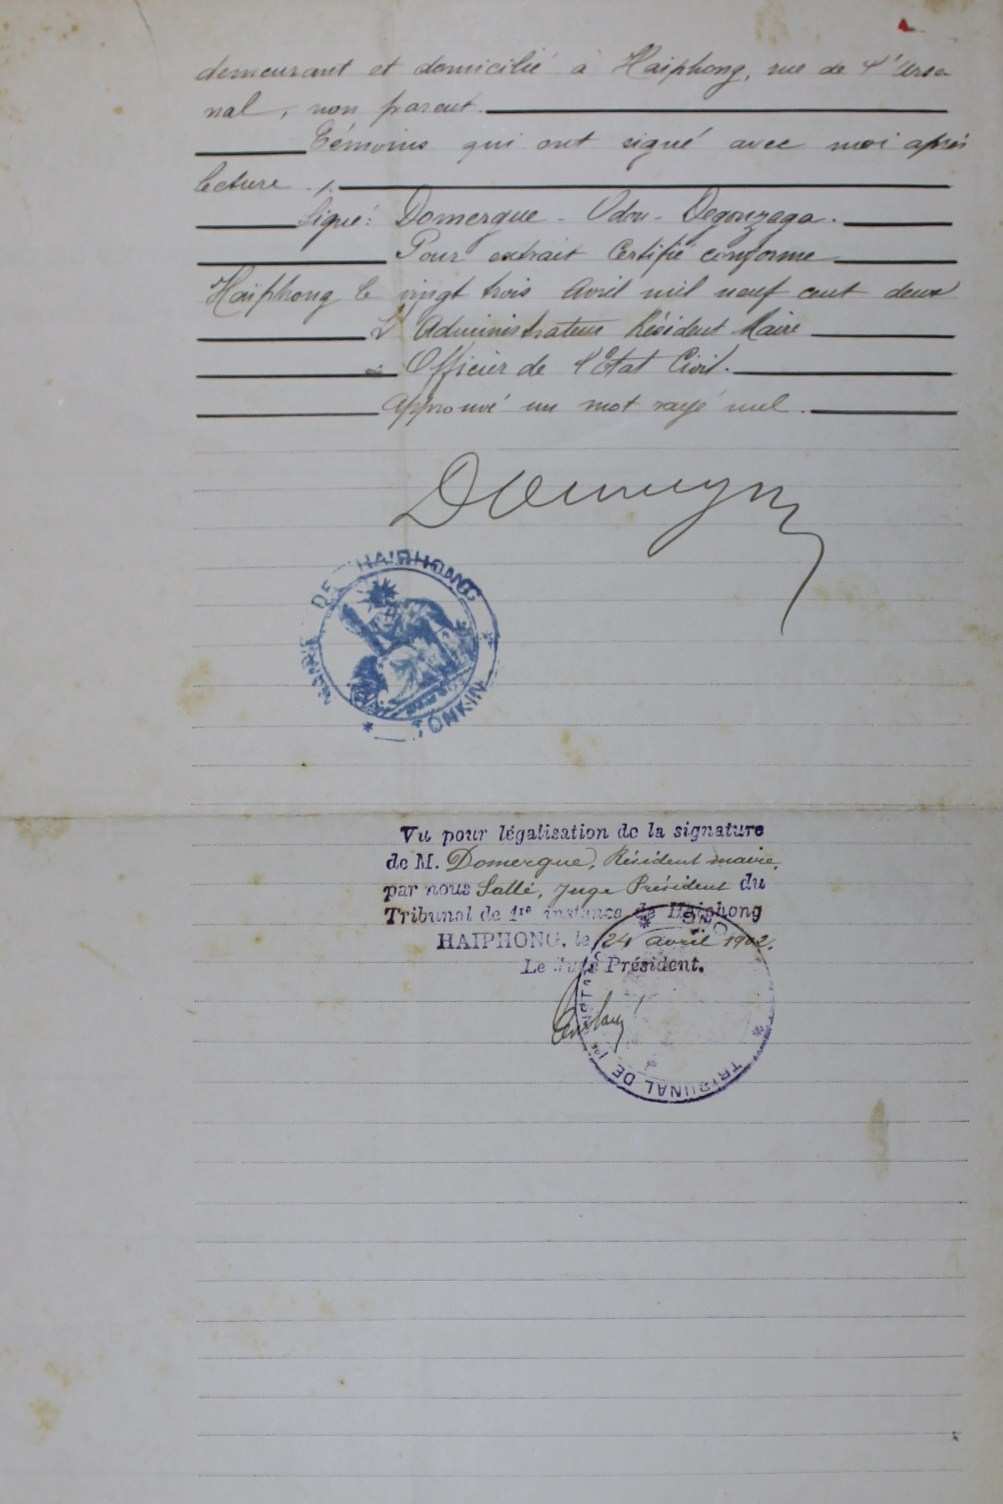 demeurant et domicilié à Haiphong, rue de l'Arse
nal, non parent.
Témoins qui ont signé avec moi après
lecture ./.
Signé: Domergue - Odou - Degonzaga.
Pour extrait Certifié conforme
Haïphong le vingt trois Avril mil neuf cent deux
L'Administrateur Résident Maire
Officier de l'Etat Civil.
Approuvé un mot rayé nul.
MAIRIE DE HAIPHONG
* TONKIN *
Vu pour légalisation de la signature
de M. Domergue, Résident maire,
par nous Sallé, Juge Président du
Tribunal de 1re instance de Haiphong
HAIPHONG, le 24 avril 1902.
Le Juge Président.
TRIBUNAL DE 1re